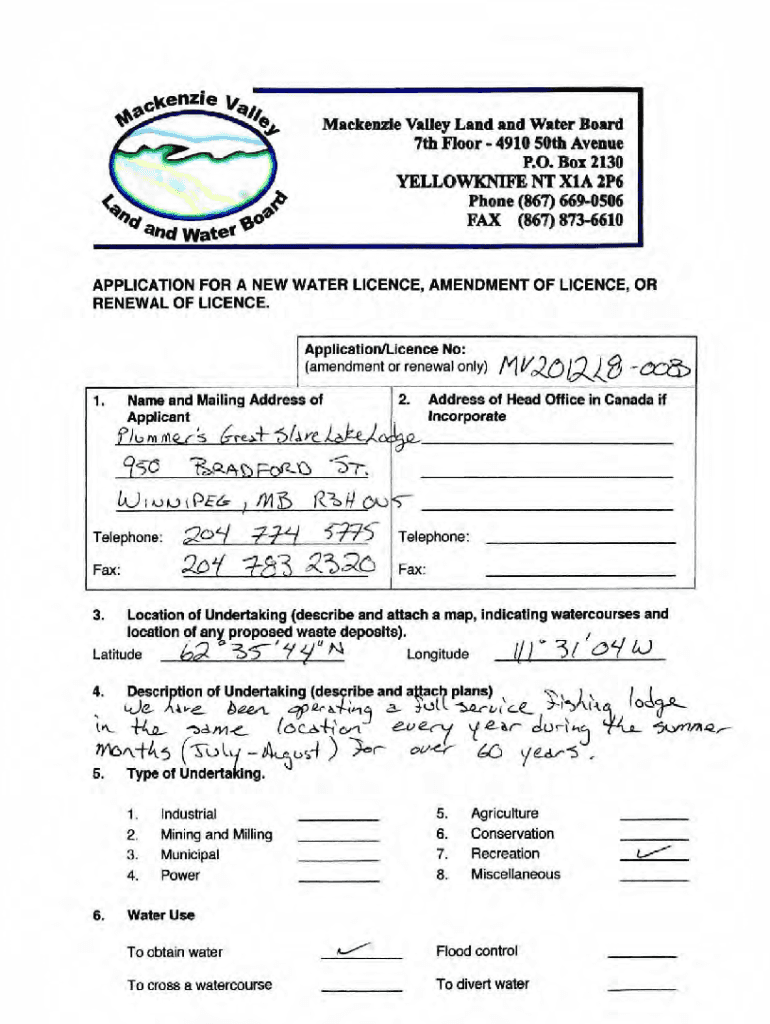 Mackenzie Valley
Land and Water Board
Mackenzie Valley Land and Water Board
7th Floor - 4910 50th Avenue
P.O. Box 2130
YELLOWKNIFE NT X1A 2P6
Phone (867) 669-0506
FAX (867) 873-6610
APPLICATION FOR A NEW WATER LICENCE, AMENDMENT OF LICENCE, OR
RENEWAL OF LICENCE.
Application/Licence No:
(amendment or renewal only) MV2012L8-008
1. Name and Mailing Address of
Applicant
Plummer's Great Slave Lake Lodge
950 BRADFORD ST.
WINNIPEG, MB R3H 0N5
Telephone: 204 774 5775
Fax: 204 783 2320
2. Address of Head Office in Canada if
Incorporate
Telephone:
Fax:
3. Location of Undertaking (describe and attach a map, indicating watercourses and
location of any proposed waste deposits).
Latitude 62° 35' 44" N Longitude 111° 31' 04 W
4. Description of Undertaking (describe and attach plans)
We have been operating a full service fishing lodge
in the same location every year during the summer
months (July - August) for over 60 years.
5. Type of Undertaking.
1. Industrial
2. Mining and Milling
3. Municipal
4. Power
5. Agriculture
6. Conservation
7. Recreation ✓
8. Miscellaneous
6. Water Use
To obtain water ✓ Flood control
To cross a watercourse To divert water